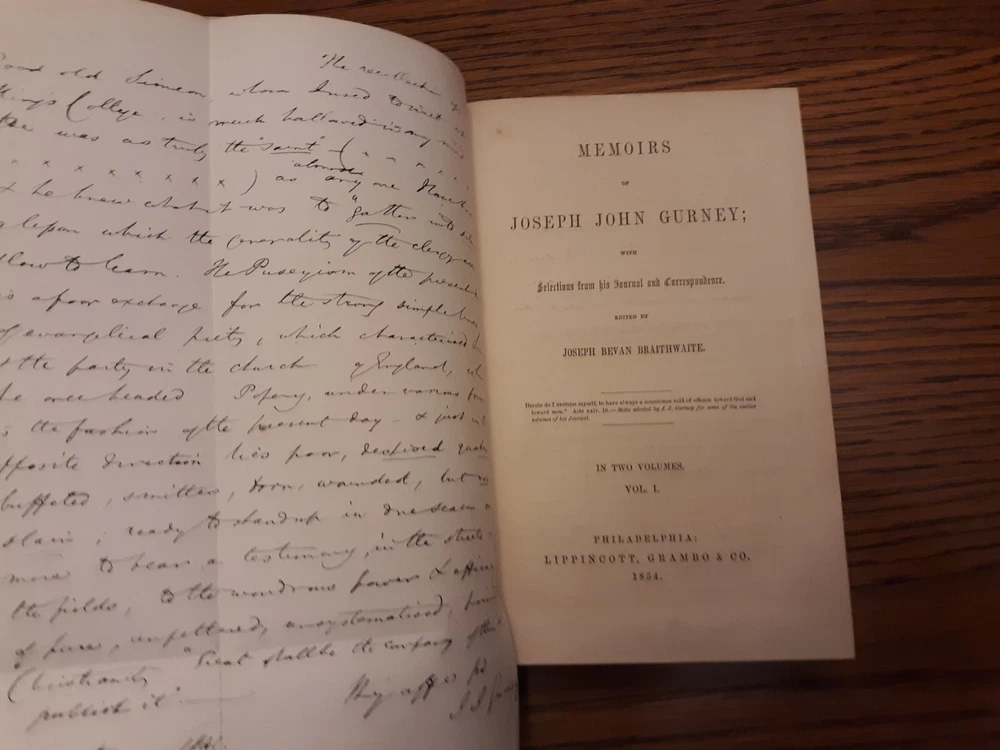 The recollection of
good old Simeon, whom I used to visit at
King's College, is much hallowed in my mind
He was as truly the "saint" (x x x x
x x x x x x) as almost any one I have
& he knew what it was to "gather into
a lesson which the generality of the clergy are
slow to learn. The Puseyism of the present
is a poor exchange for the strong simple
of evangelical piety, which characterised
the party in the church of England,
he once headed Popery, under various
is the fashion of the present day - & just in
opposite direction lies poor, despised
buffeted, smitten, torn, wounded, but
slain; ready to stand up in one season
more to bear a testimony, in the streets
the fields, to the wondrous powers &
of pure, unfettered, unsystematised,
Christianity "Great shall be the company of those
publish it"
MEMOIRS
OF
JOSEPH JOHN GURNEY;
WITH
Selections from his Journal and Correspondence.
EDITED BY
JOSEPH BEVAN BRAITHWAITE.
Herein do I exercise myself, to have always a conscience void of offence toward God and
toward men." Acts xxiv. 16.—Motto selected by J. J. Gurney for some of the earlier
volumes of his Journal.
IN TWO VOLUMES.
VOL. I.
PHILADELPHIA:
LIPPINCOTT, GRAMBO & CO.
1854.